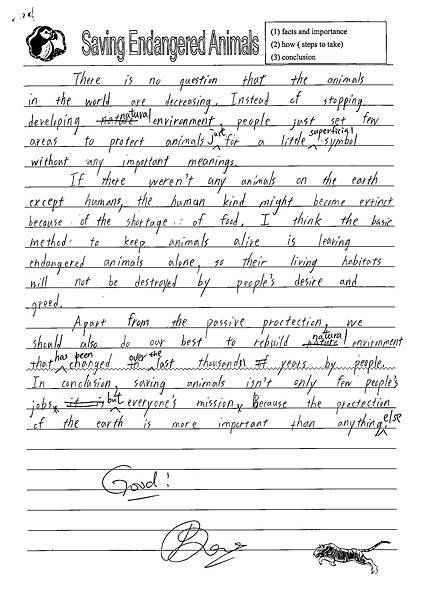 Saving Endangered Animals
(1) facts and importance
(2) how ( steps to take)
(3) conclusion
There is no question that the animals
in the world are decreasing. Instead of stopping
developing nature natural environment, people just set few
areas to protect animals just for a little superficial symbol
without any important meanings.
If there weren't any animals on the earth
except humans, the human kind might become extinct
because of the shortage of food. I think the basic
method to keep animals alive is leaving
endangered animals alone, so their living habitats
will not be destroyed by people's desire and
greed.
Apart from the passive proctection, we
should also do our best to rebuild nature natural environment
that has been changed in over the last thousands of years by people.
In conclusion, saving animals isn't only few people's
jobs, it is but everyone's mission, Because the proctection
of the earth is more important than anything else.
Good!